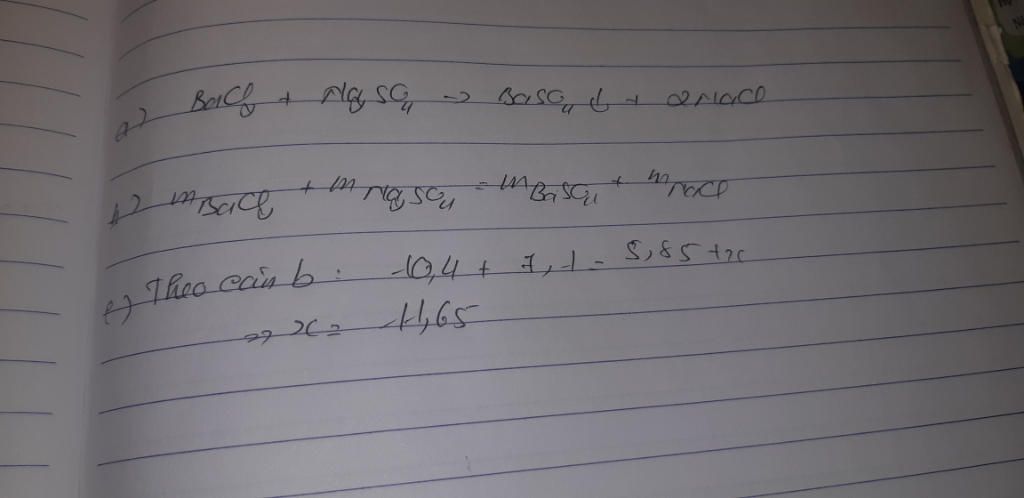 a) BaCl₂ + Na₂SO₄ -> BaSO₄ ↓ + 2NaCl
b) mBaCl₂ + mNa₂SO₄ = mBaSO₄ + mNaCl
c) Theo câu b: 10,4 + 7,1 = 5,85 + x
=> x = 11,65